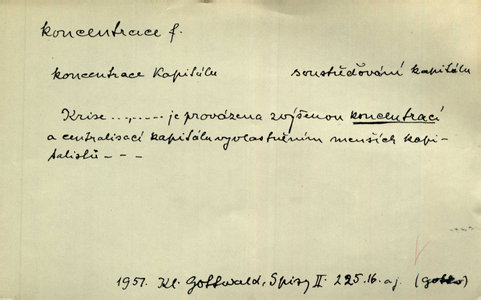 koncentrace f.
koncentrace kapitálu soustřeďování kapitálu
Krise ...,..... je provázena zvýšenou koncentrací
a centralisací kapitálu vyvlastněním menších kapi-
talistů - - -
1951. Kl. Gottwald, Spisy II. 225.16. aj. (